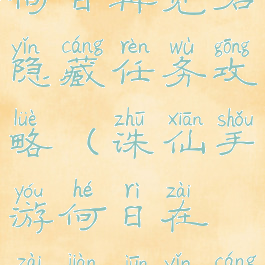 yǐn cáng rèn wù gōng
隐藏任务攻
lüè zhū xiān shǒu
略（诛仙手
yóu hé rì zài
游何日在
zài jiàn jūn yǐn cáng